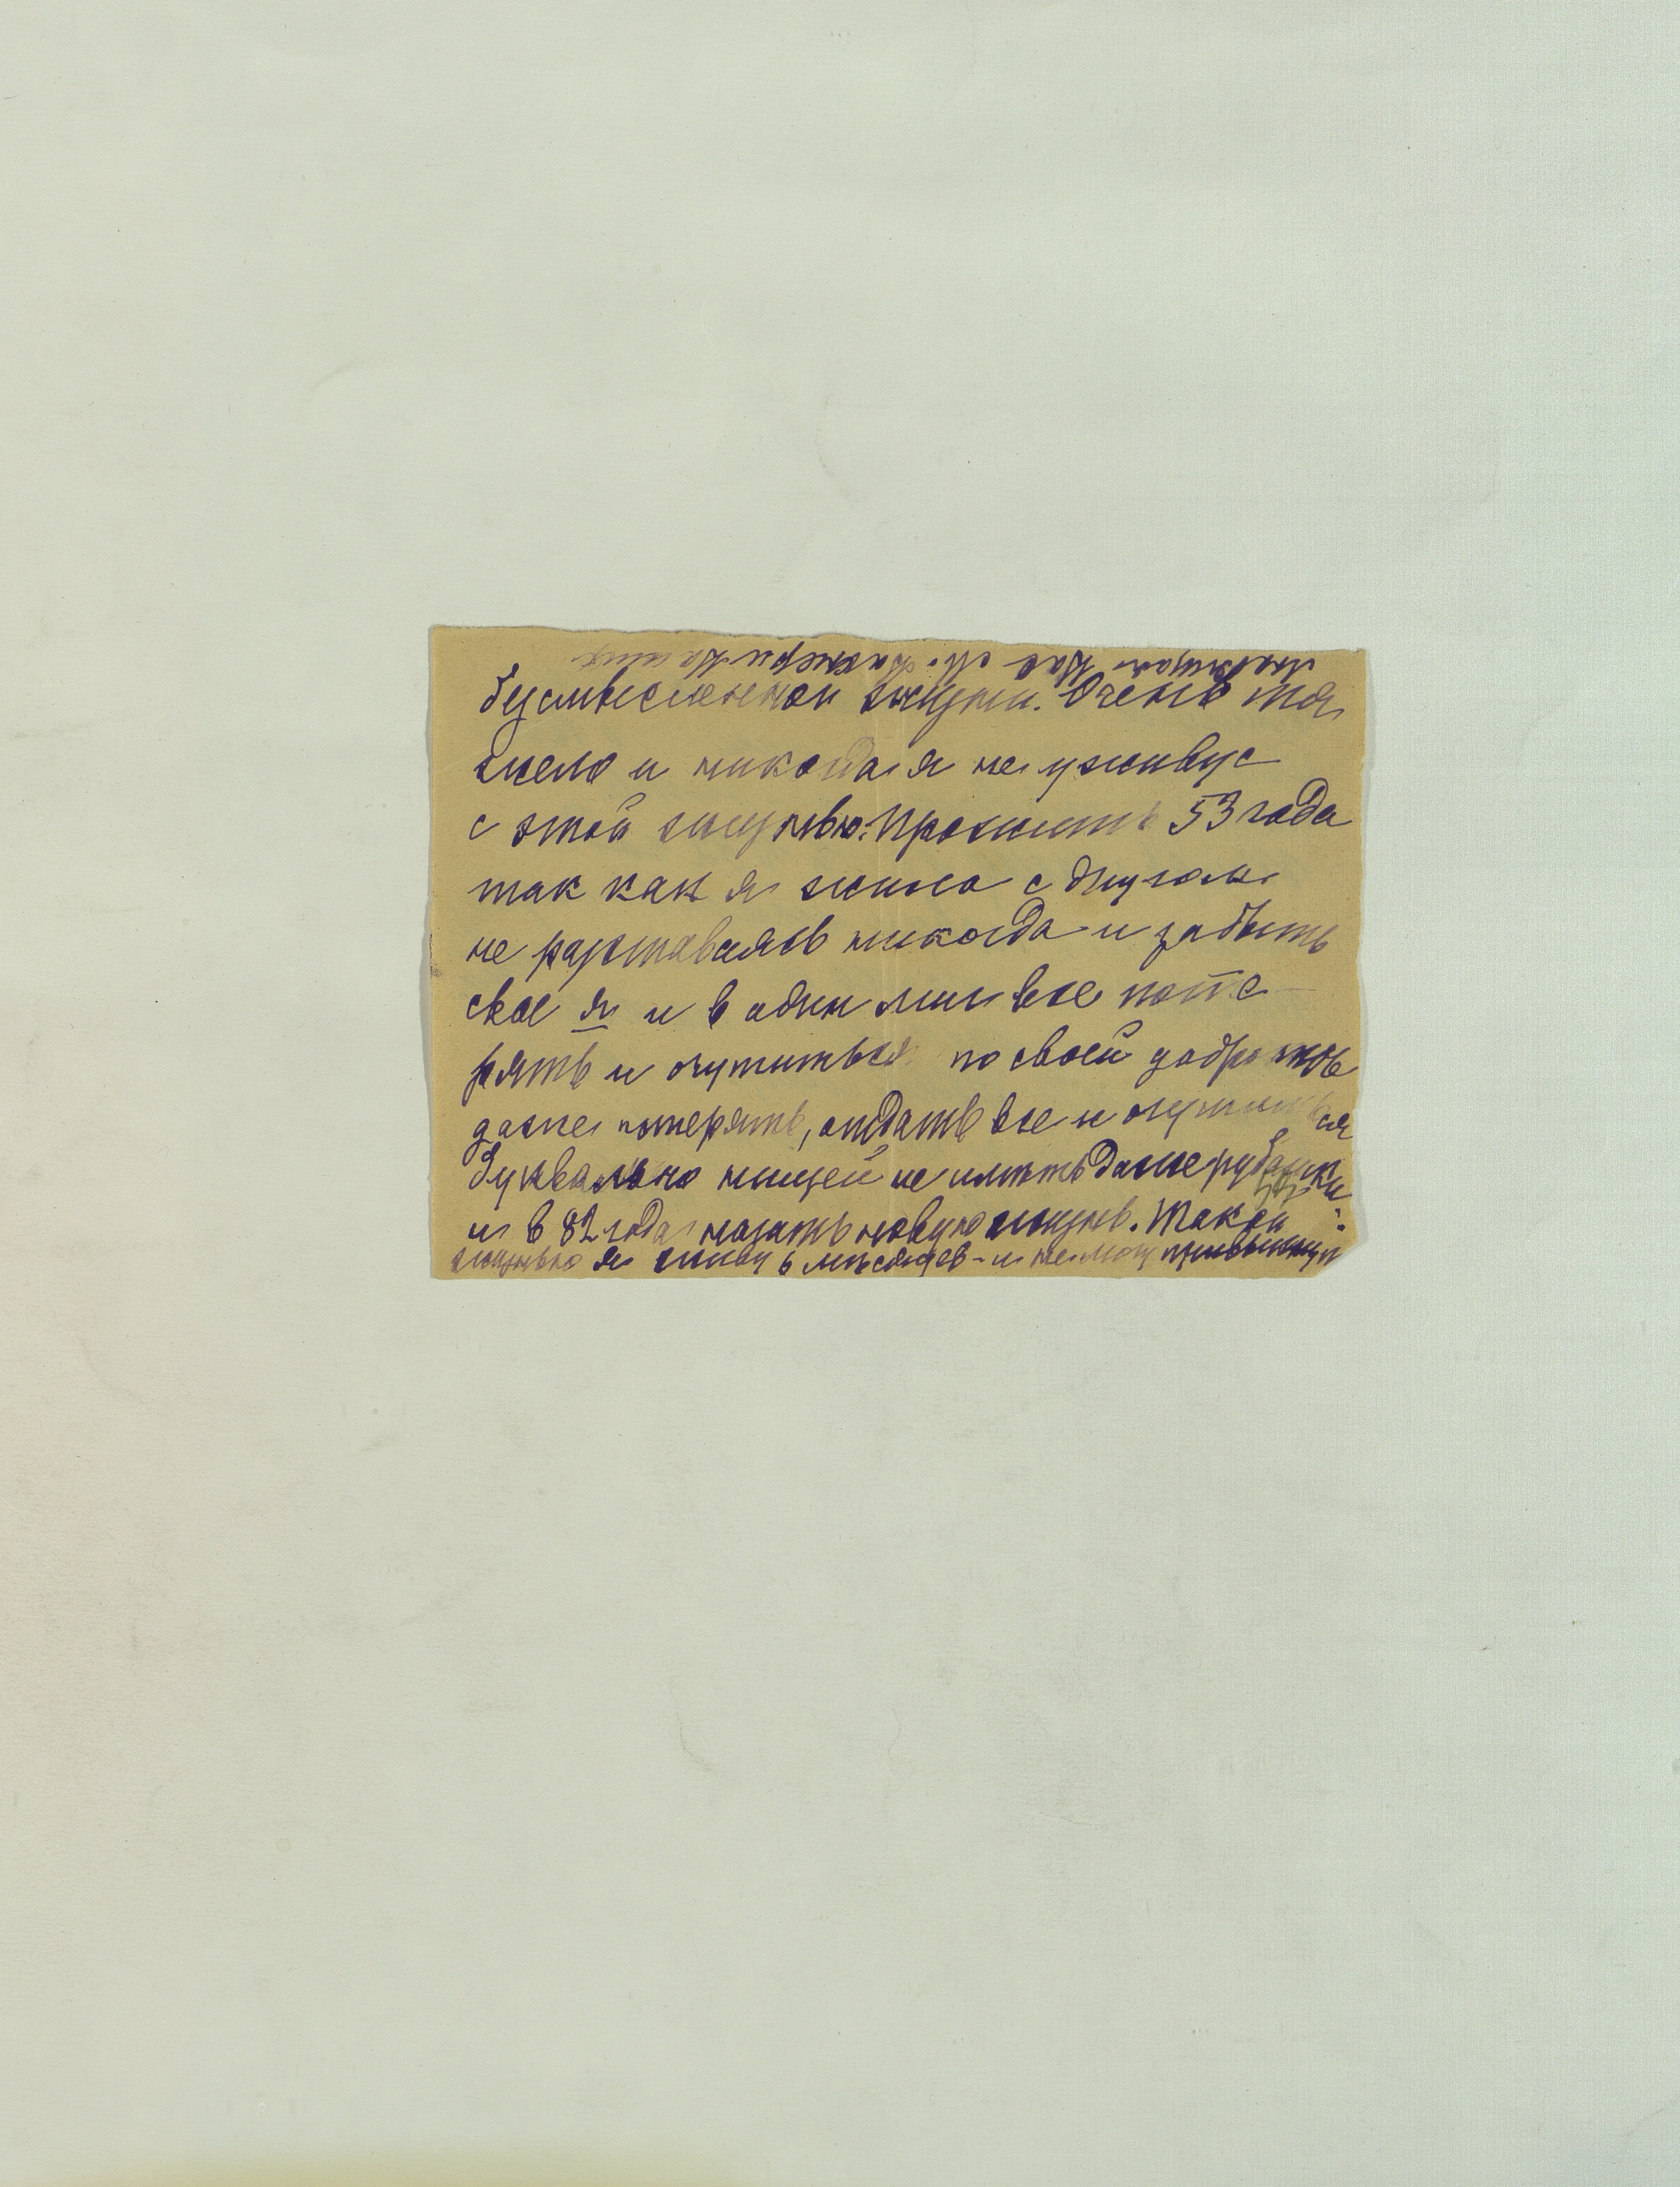 бузсмысленной жизни. Очень тя
жело и никогда я не уживус
с этой жизнью. Прожить 53 года
так как я жила с другом
не разставаясь никогда и забыть
свое я и в один миг все поте-
рять и очутиться по своей добр
даже потерять, отдать все и очутиться
буквально нищей не имѣть даже рубашки
и в 82 года начать новую жизнь. Такой
жизнью я живу 6 мѣсяцев - и не могу привыкнуть